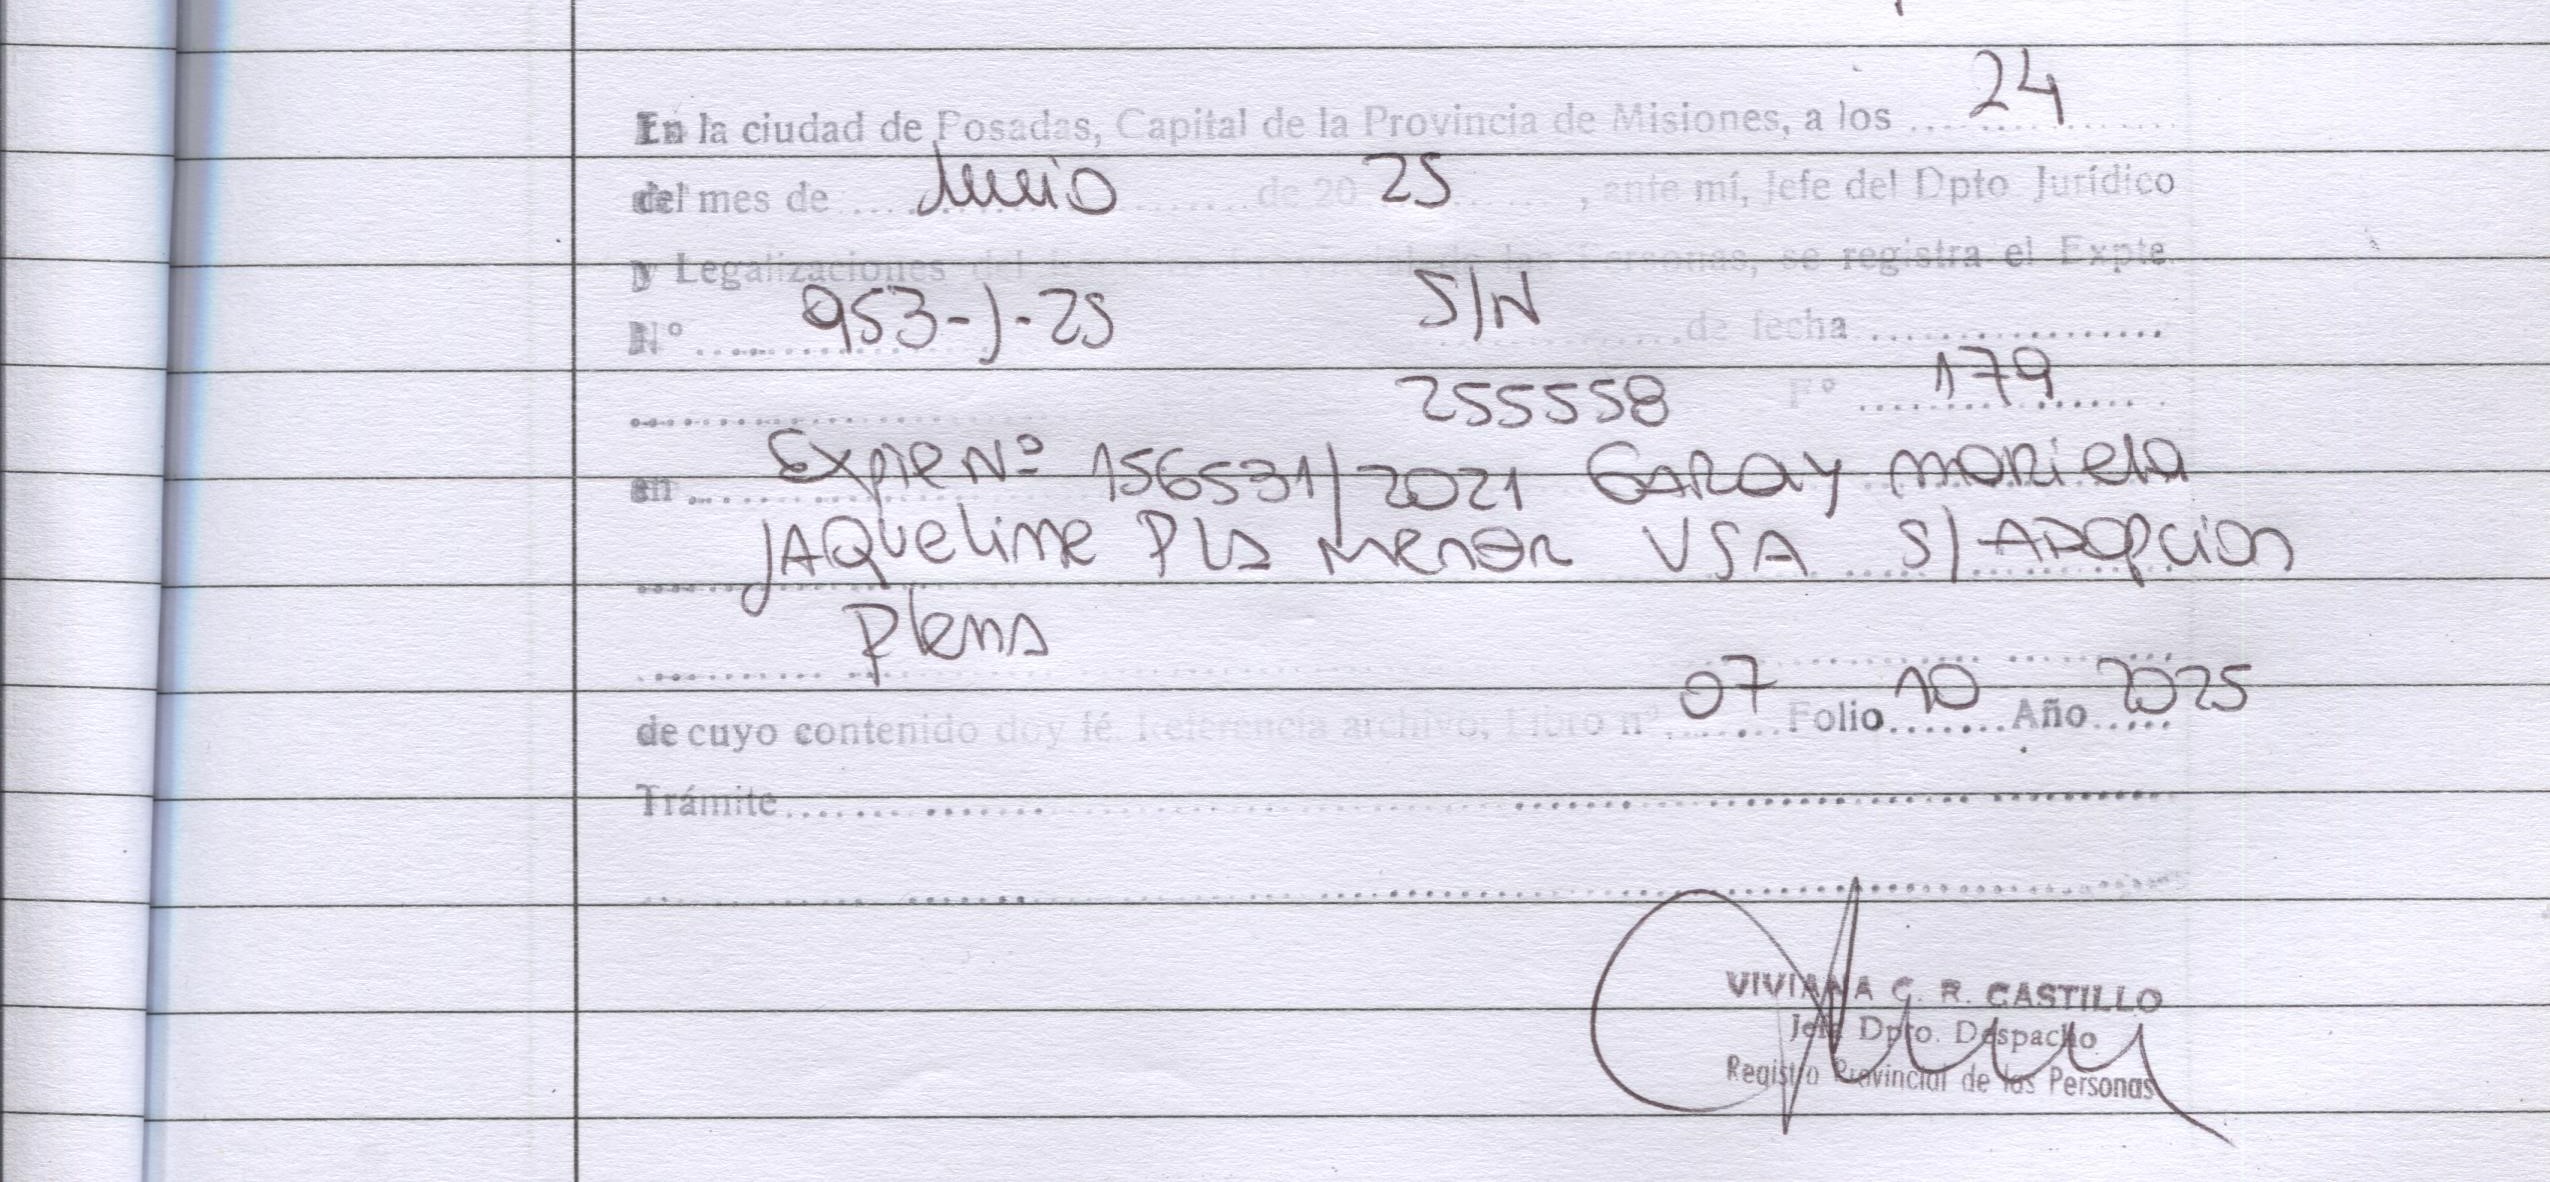 En la ciudad de Posadas, Capital de la Provincia de Misiones, a los 24
del mes de Junio de 20 25, ante mí, Jefe del Dpto Jurídico
y Legalizaciones del Personas, se registra el Expte.
Nº 953-J-25 S/N de fecha
255558 Fº 179
en Expte Nº 156531/2021 GARAY MARIELA
JAQUELINE P/LA MENOR VSA S/ ADOPCION
Plena
de cuyo contenido doy fé. Referencia archivo; Libro nº 07 Folio 10 Año 2025
Trámite
VIVIANA C. R. CASTILLO
Jefe Dpto. Despacho
Registro Provincial de las Personas